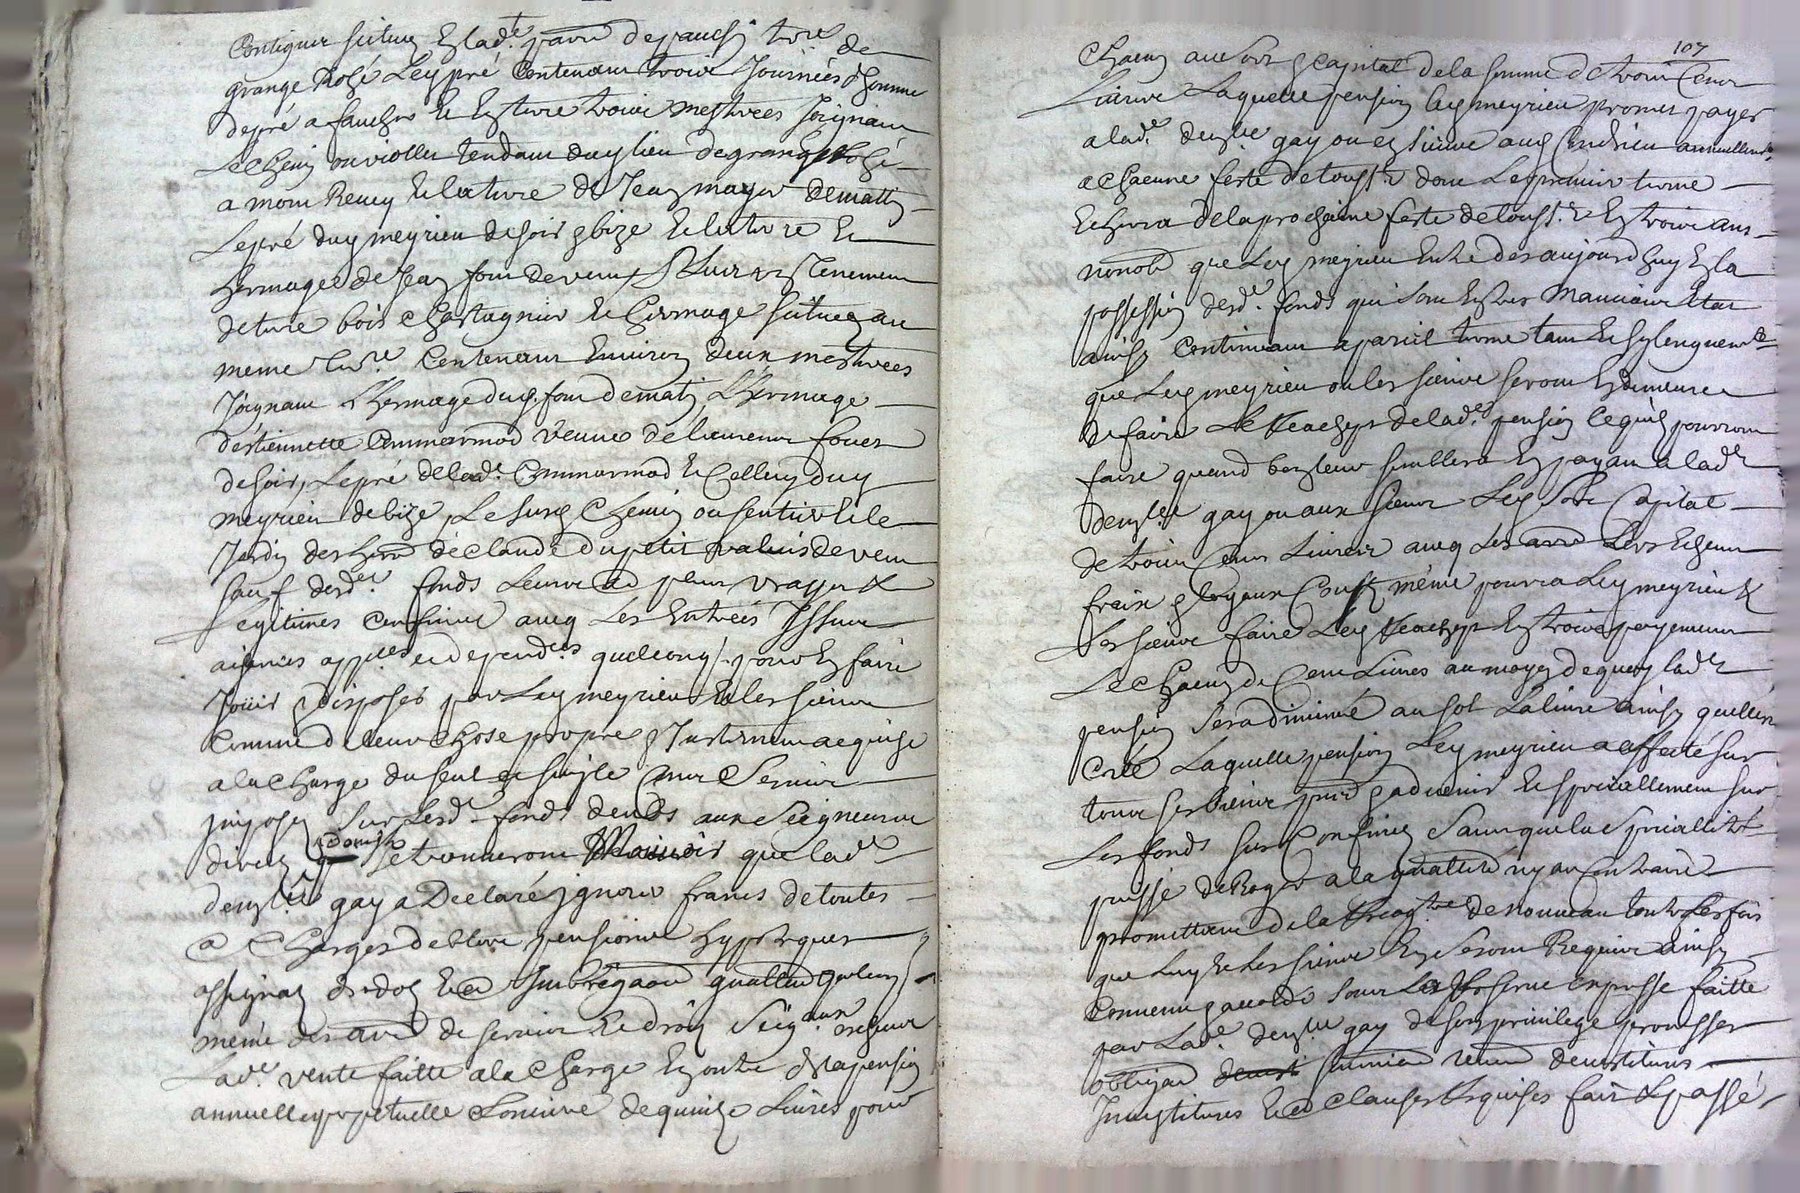 Contigues scitués En lad.te parr. de pauchy terr.e de
grange Rozé Ley pré Contenant trois Journées d'homme
de pré a faucher Et En terre trois mestrées Joignant
Le Chemin ou viollet tendant duy lieu de grange Rozé
a mont Recuy Et la terre de Jean mayor de matin
Le pré duy meyrieu de soir & bize Et la terre Et
hermages de Jean four de vent, Plus un Tenement
de terre bois Chastagnier Et hermage scitués au
meme terr.e Contenant Environ deux mestrées
Joignant L'hermage duy four de matin L'hermage
d'estiennette Commarmod veuve de
de soir, Le pré de lad.e Commarmod Et Celluy duy
meyrieu de bize, Le susd Chemin ou sentier Et le
Jardin des hers de claude du petit de vent
sauf desd.es fonds Leurs plus vrays &
Legitimes Confins avec Les Entrées Issues
aisances app.ces et depend.ces quelconq. pour En faire
Jouir & disposer par Ley meyrieu Et les siens
Comme de leur chose propre & Justement acquise
a la Charge du seul et simple Cens & Servis
imposés Sur Lesd. fonds deubs aux Seigneurs
divers dont Se trouveront que lad.e
dem.lle gay a Declaré ignorer francs de toutes
a Charges debtes pensions hypoteques
quelconq
meme des de servis Et droits Seig.aux
Lad.e vente faitte a la Charge En outre de la pension
annuelle perpetuelle & fonciere de quinze Livres pour
107
Chacun an Sous & Capital de la somme de trois Cens
Livres Laquelle pension Ley meyrieu promet payer
a lad.e dem.lle gay ou En siens aud Condrieu annuellem.t
a Chacune feste de touss.ts dont Le premier terme
Echerra de la prochaine feste de touss.ts Et En trois ans
nonobt que Ley meyrieu Entre des aujourdhuy En la
possession desd.s fonds qui sont En tres mauvais Etat
ainsy Continuant a pareil terme tant Et sy longuem.t
que Ley meyrieu ou les siens seront En demeure
de faire Le Reachept de lad.e pension Ce quils pourront
faire quand bon leur semblera En payant a lad.e
dem.lle gay ou aux siens Ley Sort Capital
de trois Cens Livres avec Les arr. Lors Echeus
frais & loyaux Cousts, même pourra Ley meyrieu &
Les siens faire Ley Reachept En trois payements
Le Chacun de Cent Livres au moyen de quoy lad.e
pension sera diminuée au sol La livre ainsy quelle est
Créé Laquelle pension Ley meyrieu a affecté sur
tous ses biens pnts & advenir Et speciallement sur
Les fonds sus Confinés Sans que la Speciallité
puisse deRoger a la generalité ny au Contraire
promettant de la Recog.tre de nouveau toutes Les fois
que Luy Et Les siens En Seront Requis ainsy
Convenu & accordé Sous La Reserve Expresse faitte
par Lad.e dem.lle gay de son privilege promesses
obligaõ
Investitures Et Clauses Requises fait & passé